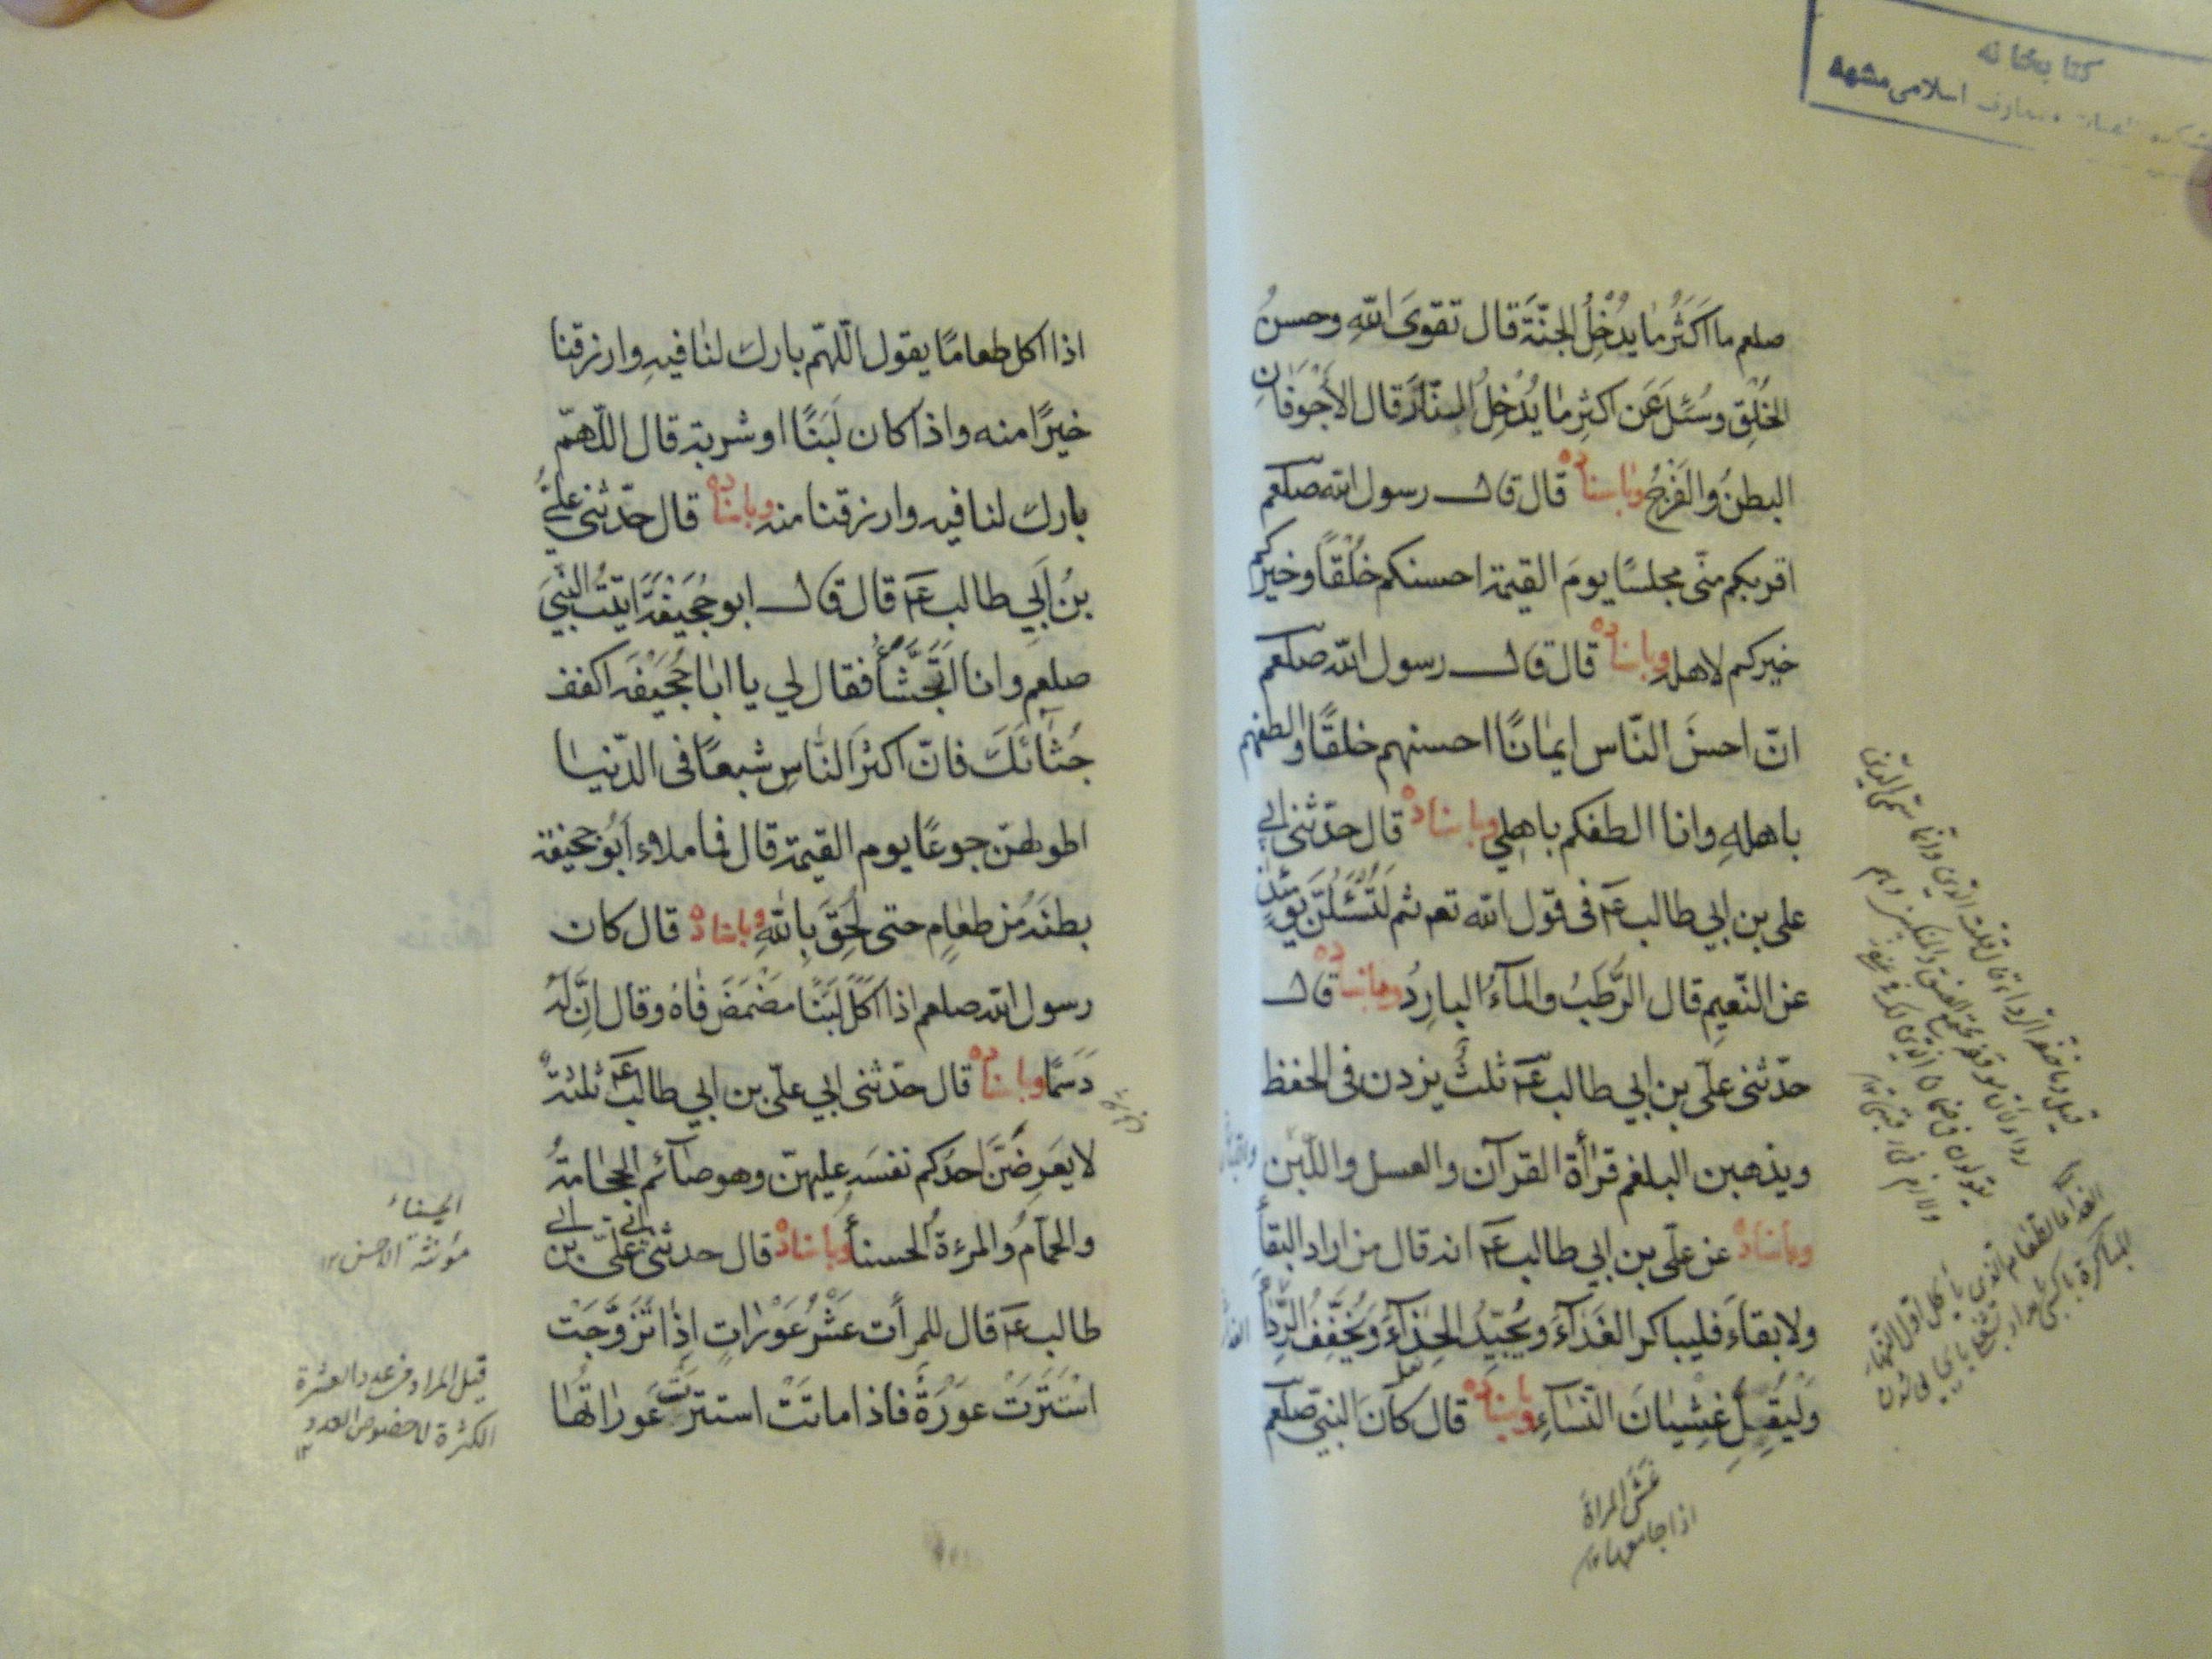 كتابخانه
معارف اسلامی مشهد
صلعم ما اَكثَرُ ما يدُخِلُ الجنّةَ قال تقوىَ اللهِ وحسنُ
الخُلْقِ وسُئلَ عَن اكثرِ ما يُدْخِلُ النّارَ قال الأَجْوَفَانِ
البطنُ والفَرْجُ وباسناده قال قال رسول الله صلعم
اقربكم منّى مجلسًا يومَ القيمة احسنكم خُلْقًا وخيركم
خيركم لاهله وباسناده قال قال رسول الله صلعم
انّ احسنَ النّاس ايمانًا احسنهم خلقًا والطفهم
باهلهِ وانا الطفكم باهلِي وباسناده قال حدّثنى ابى
على بن ابي طالب ع م فى قول الله تعم ثم لَتُسْئَلُنّ يَوْمَئِذٍ
عن النّعيمِ قال الرُّطَبُ والمآءُ البارِدُ وباسناده قال
حدّثنى علّى بن ابي طالب ع م ثلثٌ يزدن فى الحفظ
ويذهبن البلغم قرأة القرآن والعسل واللّبن
وباسناده عن علّى بن ابي طالب ع م انه قال من اراد البقأ
ولا بقاءَ فليباكر الغَدَآءَ ويُجَيّدُ الحِذَآءَ وَيُخَفِّفُ الرِّدَآءَ
وَلْيُقِلَّ غِشْيانَ النّسَاءِ وباسناده قال كانَ النبي صلعم
غشى المراة
اذا جامعها ١٢
اذا اكل طعامًا يقول اللّهمّ بارك لنا فيهِ وارزقنا
خيرًا منه واذا كان لَبَنًا او شربة قال اللّهمّ
بارك لنا فيه وارزقنا منه وباسناده قال حدّثنى علىُّ
بنُ اَبي طالب ع م قال قال ابو جُحَيْفَةَ اتيتُ النّبيَ
صلعم وانا اَتَجَشَّأُ فقال لي يا ابا جُحَيْفَه اكفف
جُشَآئَكَ فانّ اكثرَ النّاسِ شبعًا فى الدّنيا
اطولهنّ جوعًا يوم القيمة قال فما ملاء اَبُو جحيفة
بطنَهُ من طعامٍ حتى لَحِقَ بِاللهِ وباسناده قال كان
رسول الله صلعم اذا اَكَلَ لَبَنًا مضْمَضَ فاهُ وقال اِنَّ لَهُ
دَسَمًا وباسناده قال حدّثنى ابي علّى بن ابي طالب ع م ثلثةٌ
لا يَعرِضَنَّ احدَكم نفسَه عليهنّ وهو صآئم الحجامةُ
والحمّامُ والمرءةُ الحسنأُ وباسناده قال حدثنى ابى علىّ بن ابى
طالب ع م قال للمرأت عَشْرُ عَوْراتٍ اِذا تَزَوَّجَت
اسْتَتَرَتْ عَوْرَةٌ فاذا ماتَتْ استترتْ عَوراتُها
الحسناء
مؤنثة الاحسن ١٢
قيل المراد من عدد العشرة
الكثرة لا خصوص العدد
١٢